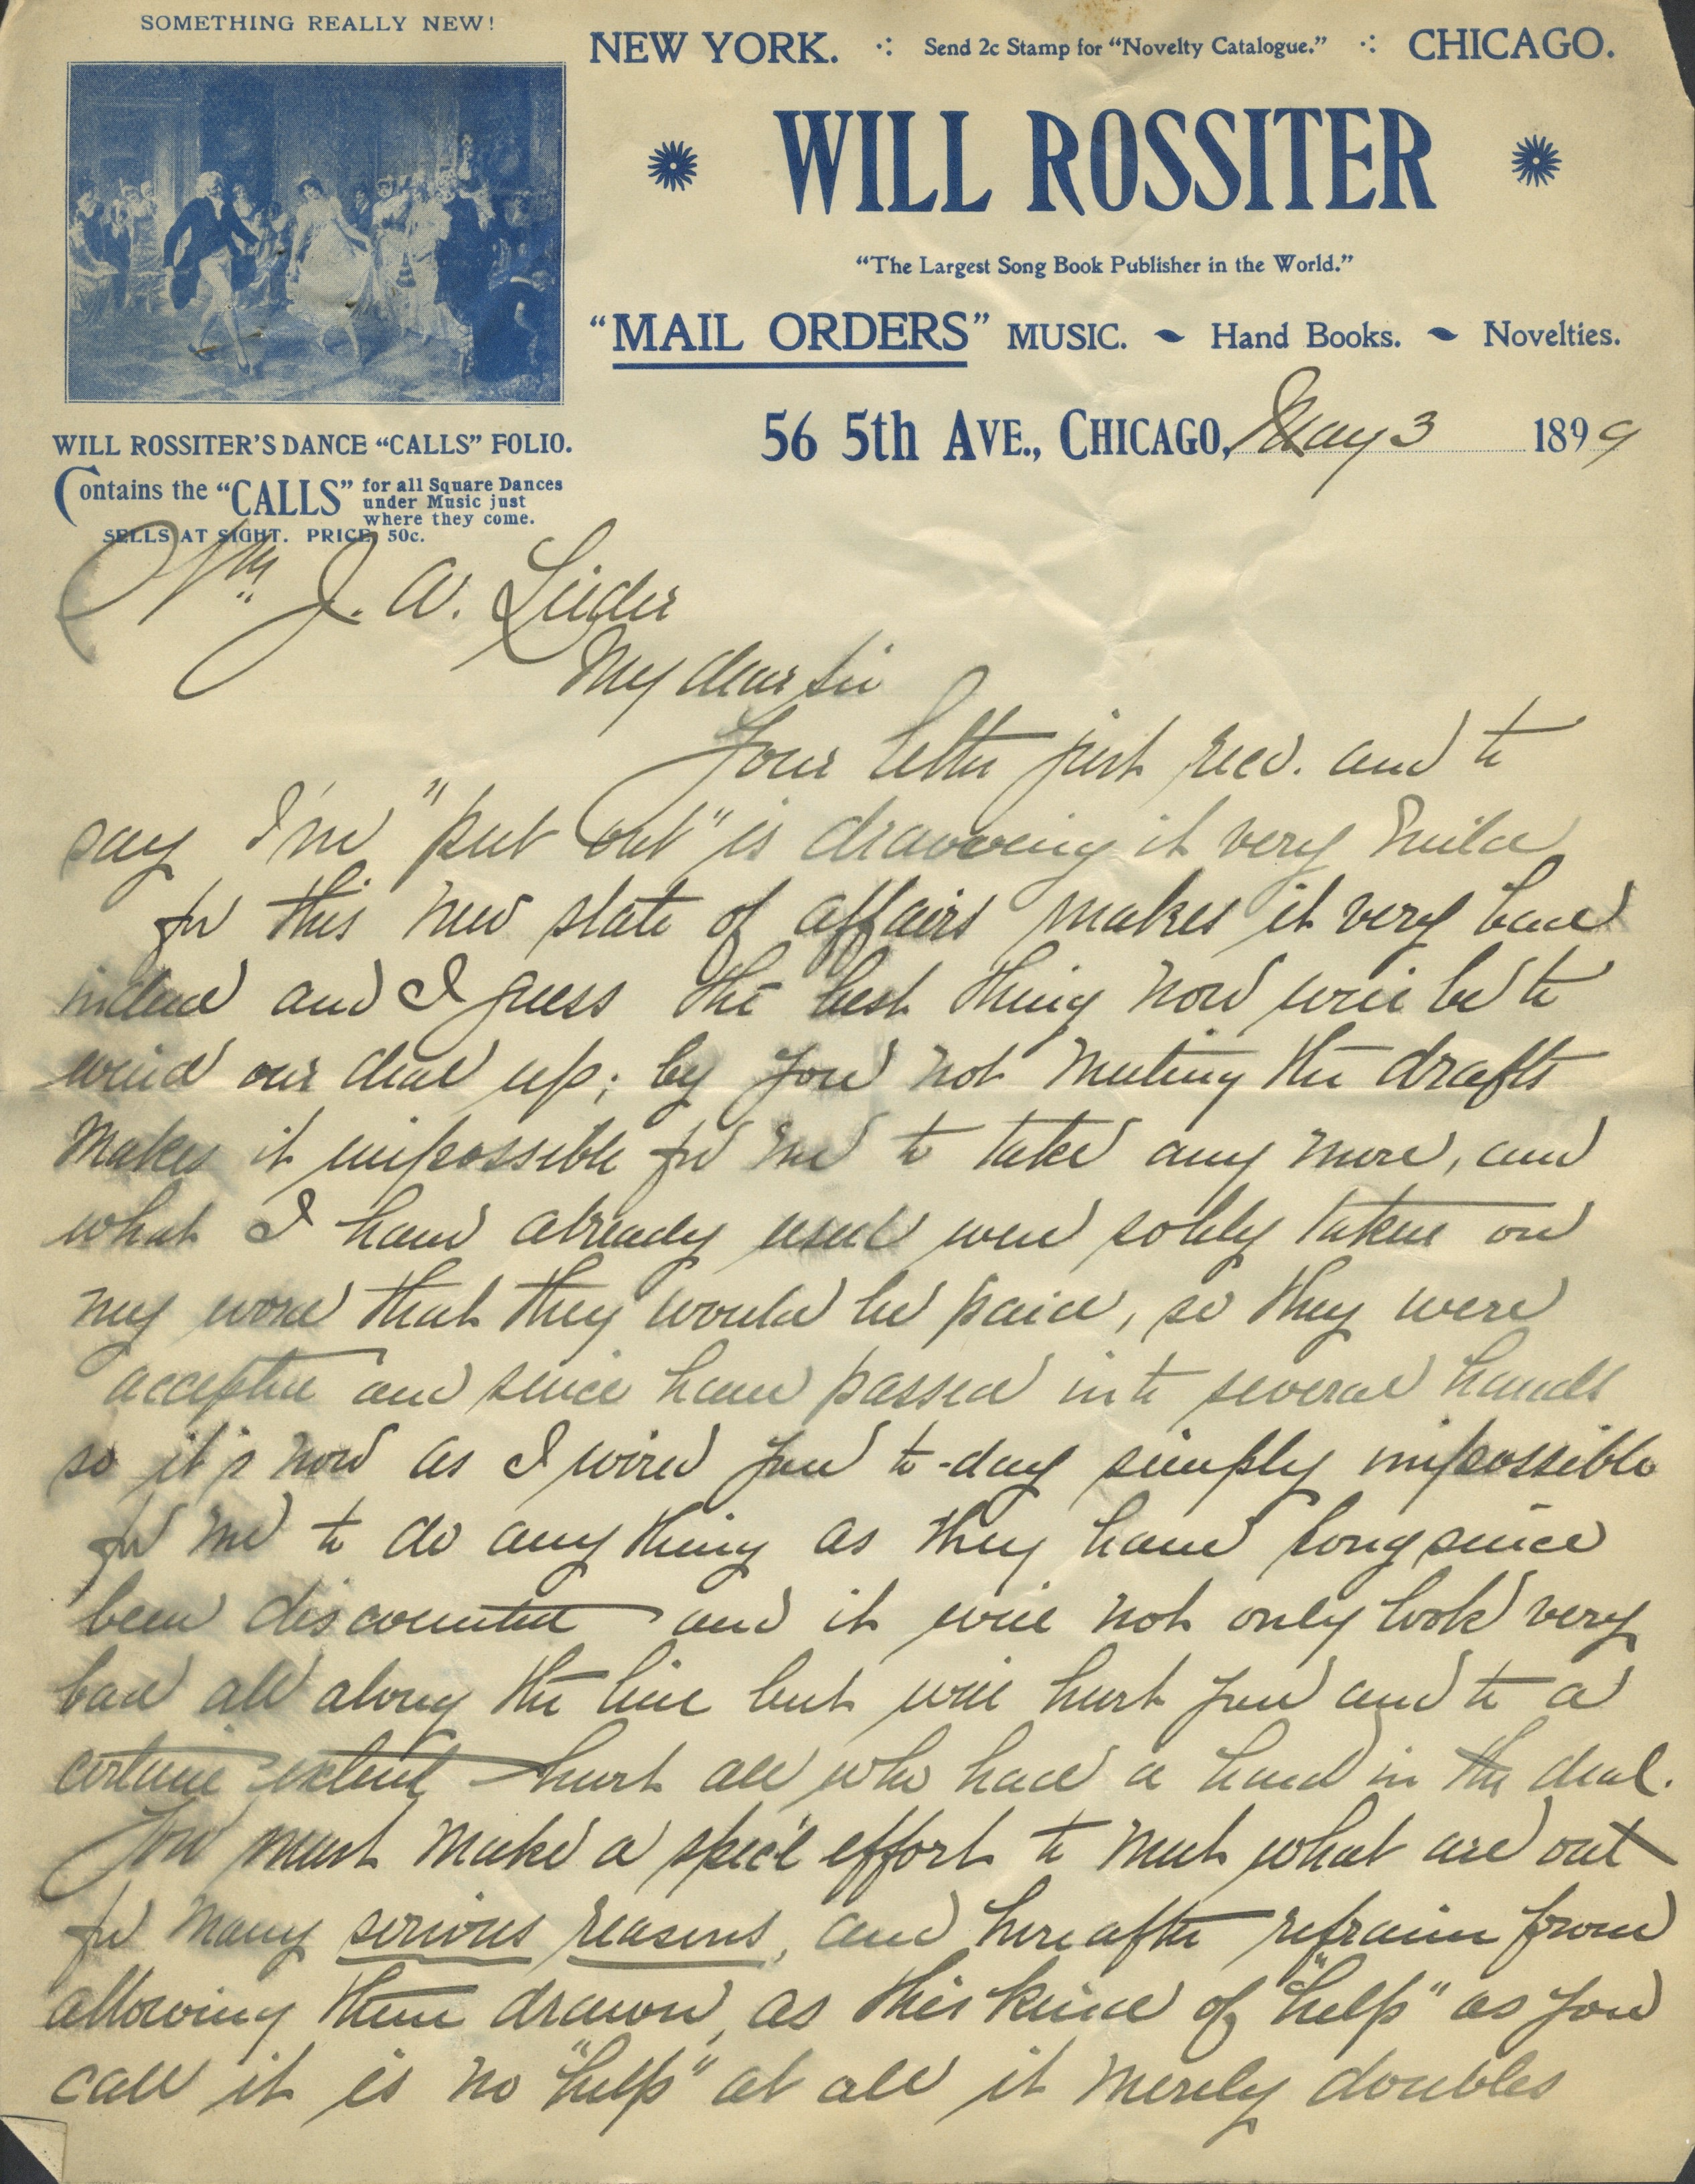 SOMETHING REALLY NEW!
NEW YORK. Send 2c Stamp for “Novelty Catalogue.” CHICAGO.
WILL ROSSITER
“The Largest Song Book Publisher in the World.”
“MAIL ORDERS” MUSIC. Hand Books. Novelties.
56 5th AVE., CHICAGO, May 3 1899
WILL ROSSITER'S DANCE “CALLS” FOLIO.
Contains the “CALLS” for all Square Dances
under Music just
where they come.
SELLS AT SIGHT. PRICE 50c.
J. W.
My dear Sir
Your letter just recd. and to
say I'm "put out" is drawing it very mild
for this new state of affairs makes it very bad
indeed and I guess the best thing now will be to
wind our deal up; by you not meeting the drafts
makes it impossible for me to take any more, and
what I have already used were solely taken on
my word that they would be paid, so they were
accepted and since have passed into several hands
so it's now as I wired you to-day simply impossible
for me to do anything as they have long since
been discounted and it will not only look very
bad all along the line but will hurt you and to a
certain extent hurt all who had a hand in the deal.
You must make a spec'l effort to meet what are out
for many serious reasons, and hereafter refrain from
allowing them drawn, as this kind of "help" as you
call it is no "help" at all it merely doubles